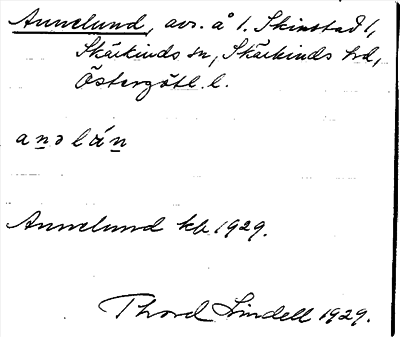 Annelund, avs. å 1. Skinstad 1,
Skärkinds sn, Skärkinds hd,
Östergötl. l.
Annelund kb 1929.
Thord Lindell 1929.